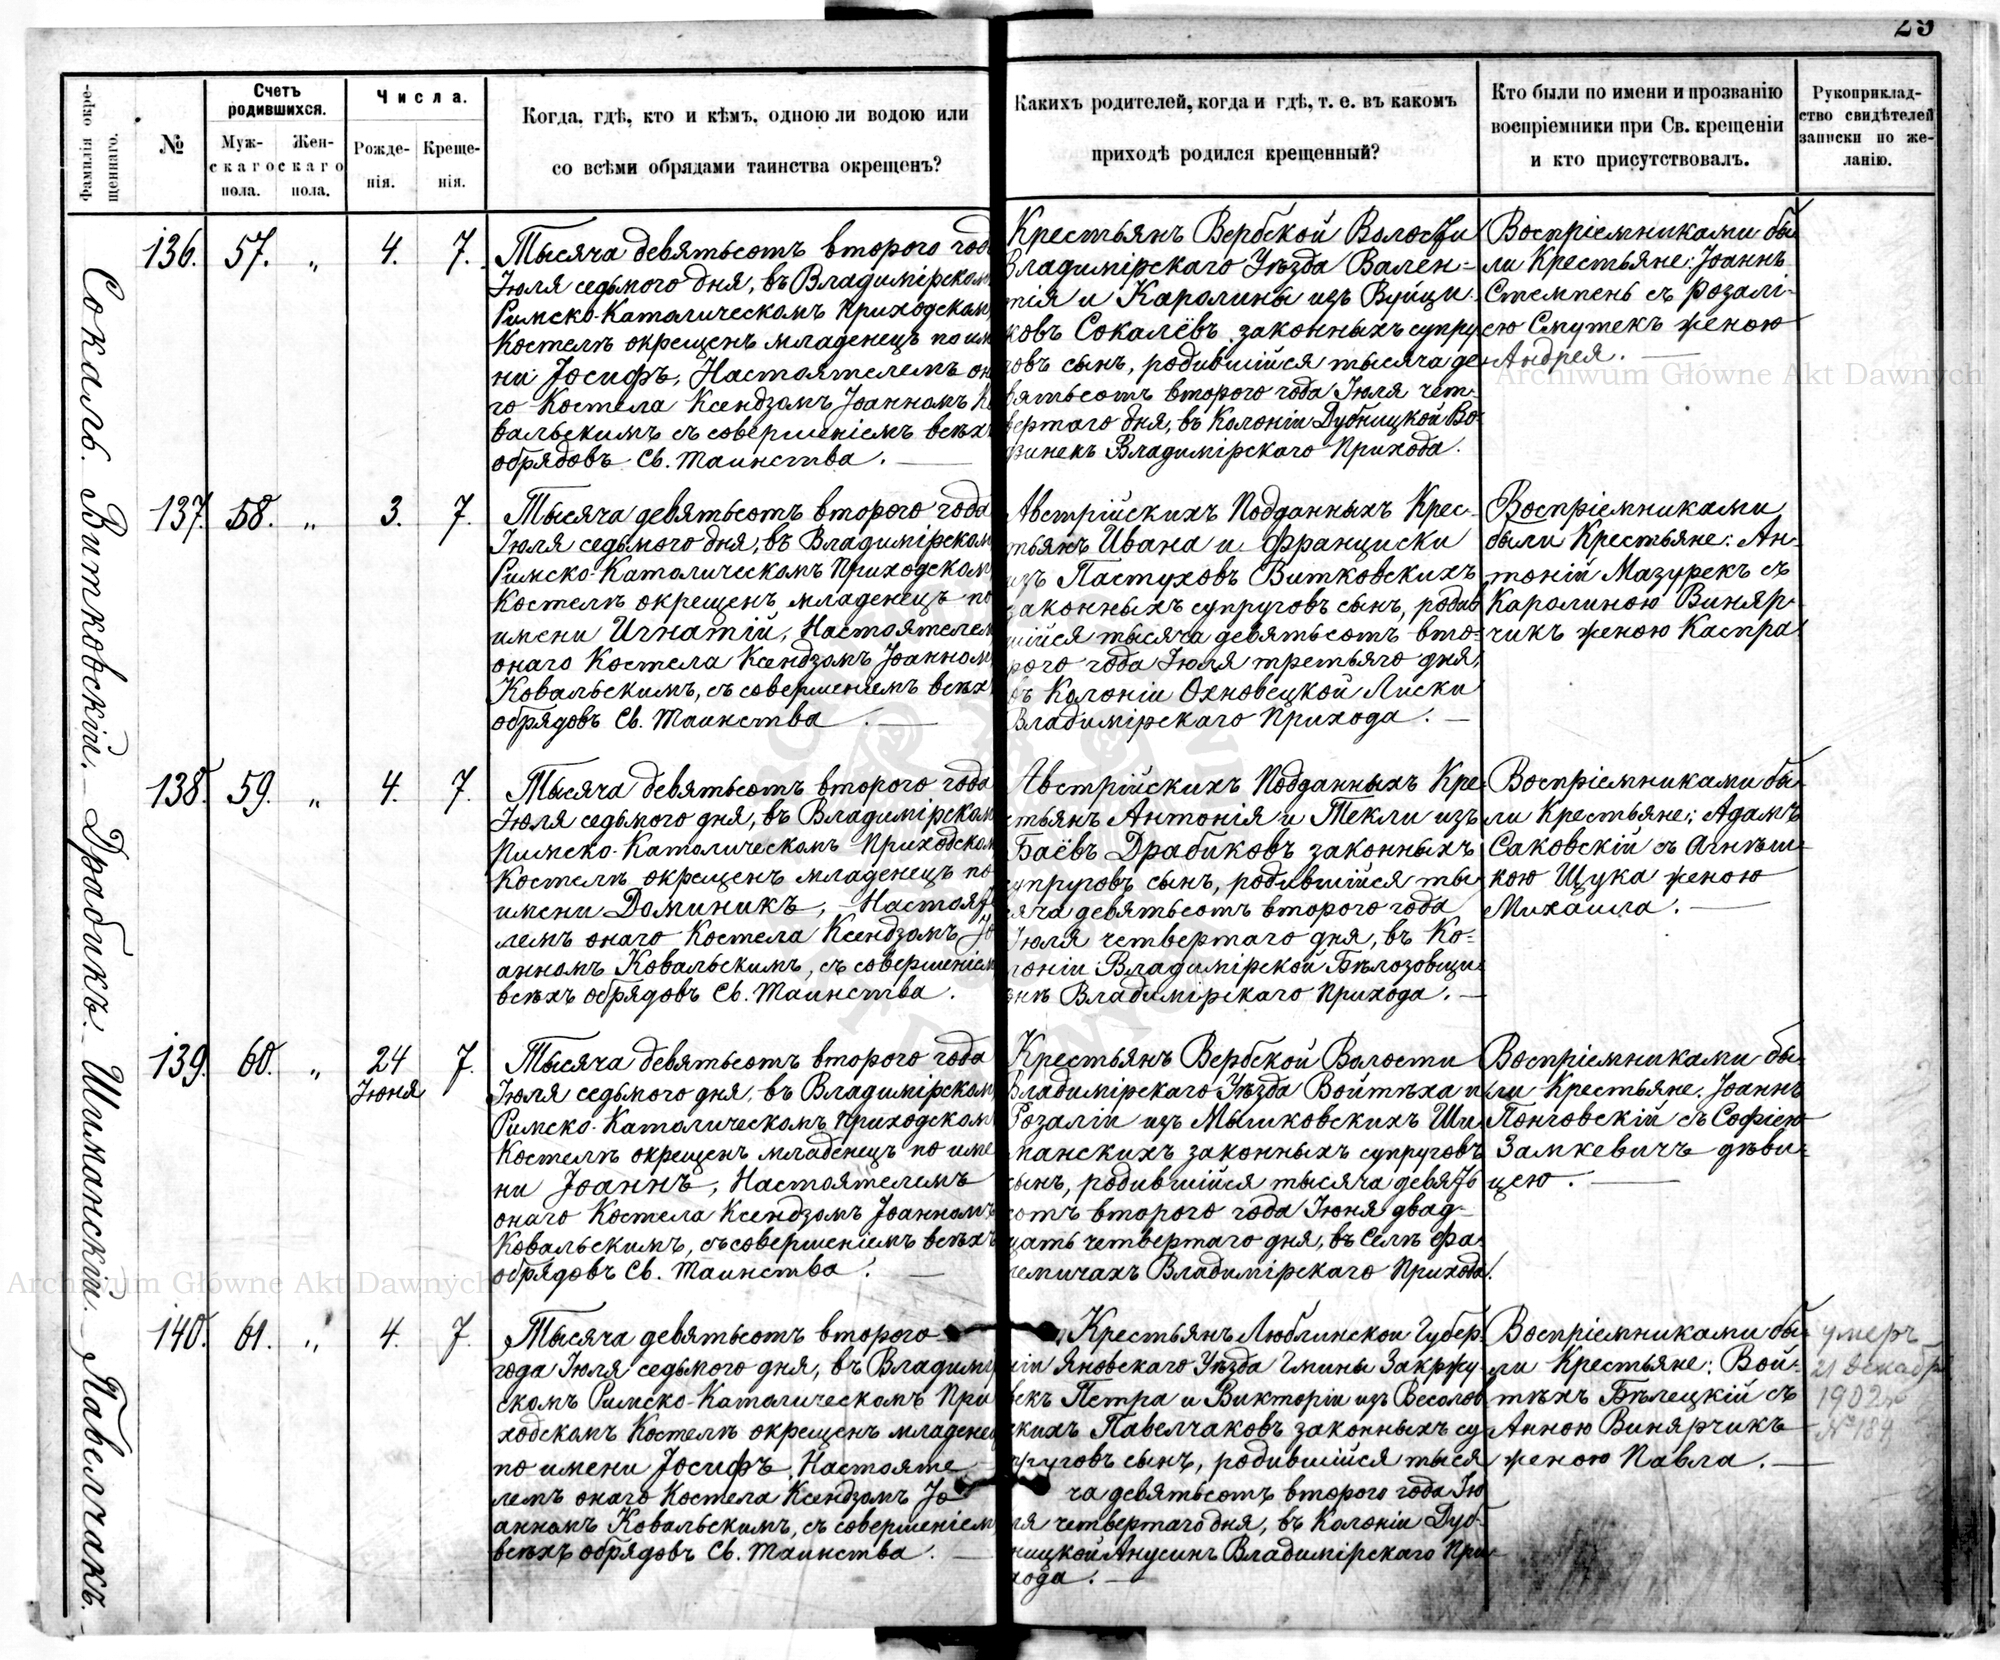 25
Фамилія окре-
щеннаго.
№
Счетъ
родившихся.
Муж-
скаго
пола.
Жен-
скаго
пола.
Числа.
Рожде-
нія.
Креще-
нія.
Когда, гдѣ, кто и кѣмъ, одною ли водою или
со всѣми обрядами таинства окрещенъ?
Какихъ родителей, когда и гдѣ, т. е. въ какомъ
приходѣ родился крещенный?
Кто были по имени и прозванію
воспріемники при Св. крещеніи
и кто присутствовалъ.
Рукоприклад-
ство свидѣтелей
записки по же-
ланію.
Сокаль. Витковскій. Драбикъ. Шиманскій. Павелчакъ.
136. 57. „ 4. 7.
Тысяча девятьсотъ второго год
Іюля седьмого дня, въ Владимірском
Римско-Католическомъ Приходском
Костелѣ окрещенъ младенецъ по им
ни Іосифъ, Настоятелемъ он
го Костела Ксендзомъ Іоанномъ К
вальскимъ съ совершеніемъ всѣх
обрядовъ Св. Таинства.
Крестьянъ Вербской Волости
Владимірскаго Уѣзда Вален-
тія и Каролины изъ Вуйци
ковъ Сокалёвъ законныхъ супру
говъ сынъ, родившійся тысяча де
вятьсотъ второго года Іюля чет-
вертаго дня, въ Колоніи Дубницкой Во
динекъ Владимірскаго Прихода.
Воспріемниками бы-
ли Крестьяне: Іоаннъ
Стемпень съ Розалі-
ею Смутекъ женою
Андрея.
137. 58. „ 3. 7.
Тысяча девятьсотъ второго года
Іюля седьмого дня, въ Владимірском
Римско-Католическомъ Приходском
Костелѣ окрещенъ младенецъ по
имени Игнатій, Настоятелем
онаго Костела Ксендзомъ Іоанном
Ковальскимъ, съ совершеніемъ всѣх
обрядовъ Св. Таинства.
Австрійскихъ Подданныхъ Крес-
тьянъ Ивана и Франциски
изъ Пастуховъ Витковскихъ
законныхъ супруговъ сынъ, родив
шійся тысяча девятьсотъ вто-
рого года Іюля третьяго дня,
въ Колоніи Охновецкой Лиски
Владимірскаго Прихода.
Воспріемниками
были Крестьяне: Ан-
тоній Мазурекъ съ
Каролиною Виняр-
чикъ женою Каспра
138. 59. „ 4. 7.
Тысяча девятьсотъ второго года
Іюля седьмого дня, въ Владимірском
Римско-Католическомъ Приходском
Костелѣ окрещенъ младенецъ по
имени Доминикъ, Настояте
лемъ онаго Костела Ксендзомъ Іо
анномъ Ковальскимъ, съ совершеніем
всѣхъ обрядовъ Св. Таинства.
Австрійскихъ Подданныхъ Кре-
стьянъ Антонія и Текли изъ
Баёвъ Драбиковъ законныхъ
супруговъ сынъ, родившійся ты-
сяча девятьсотъ второго года
Іюля четвертаго дня, въ Ко-
лоніи Владимірской Бѣлозовщи
знѣ Владимірскаго Прихода.
Воспріемниками бы-
ли Крестьяне: Адамъ
Саковскій съ Агнѣш-
кою Щука женою
Михаила.
139. 60. „ 24 Іюня 7.
Тысяча девятьсотъ второго года
Іюля седьмого дня, въ Владимірском
Римско-Католическомъ Приходском
Костелѣ окрещенъ младенецъ по име
ни Іоаннъ, Настоятелемъ
онаго Костела Ксендзомъ Іоанномъ
Ковальскимъ, съ совершеніемъ всѣхъ
обрядовъ Св. Таинства.
Крестьянъ Вербской Волости
Владимірскаго Уѣзда Войтѣха и
Розаліи изъ Мышковскихъ Ши-
манскихъ законныхъ супруговъ
сынъ, родившійся тысяча девять
сотъ второго года Іюня двад-
цать четвертаго дня, въ Селѣ Фа
лемичахъ Владимірскаго Прихода.
Воспріемниками бы-
ли Крестьяне: Іоаннъ
Понговскій съ Софіею
Замкевичъ дѣви-
цею.
140. 61. „ 4. 7.
Тысяча девятьсотъ второго
года Іюля седьмого дня, въ Владимі
скомъ Римско-Католическомъ При
ходскомъ Костелѣ окрещенъ младене
по имени Іосифъ, Настояте
лемъ онаго Костела Ксендзомъ Іо
анномъ Ковальскимъ, съ совершеніем
всѣхъ обрядовъ Св. Таинства.
Крестьянъ Люблинской Губер-
ніи Яновскаго Уѣзда Гмины Закржу
векъ Петра и Викторіи изъ Весолов
скихъ Павелчаковъ законныхъ су
пруговъ сынъ, родившійся тыся
ча девятьсотъ второго года Ію
ля четвертаго дня, въ Колоніи Дуб-
ницкой Анусинъ Владимірскаго При
хода.
Воспріемниками бы-
ли Крестьяне: Вой-
тѣхъ Бѣлецкій съ
Анною Винярчикъ
женою Павла.
умеръ
21 декабря
1902 г
№ 184
Archiwum Główne Akt Dawnych
Archiwum Główne Akt Dawnych